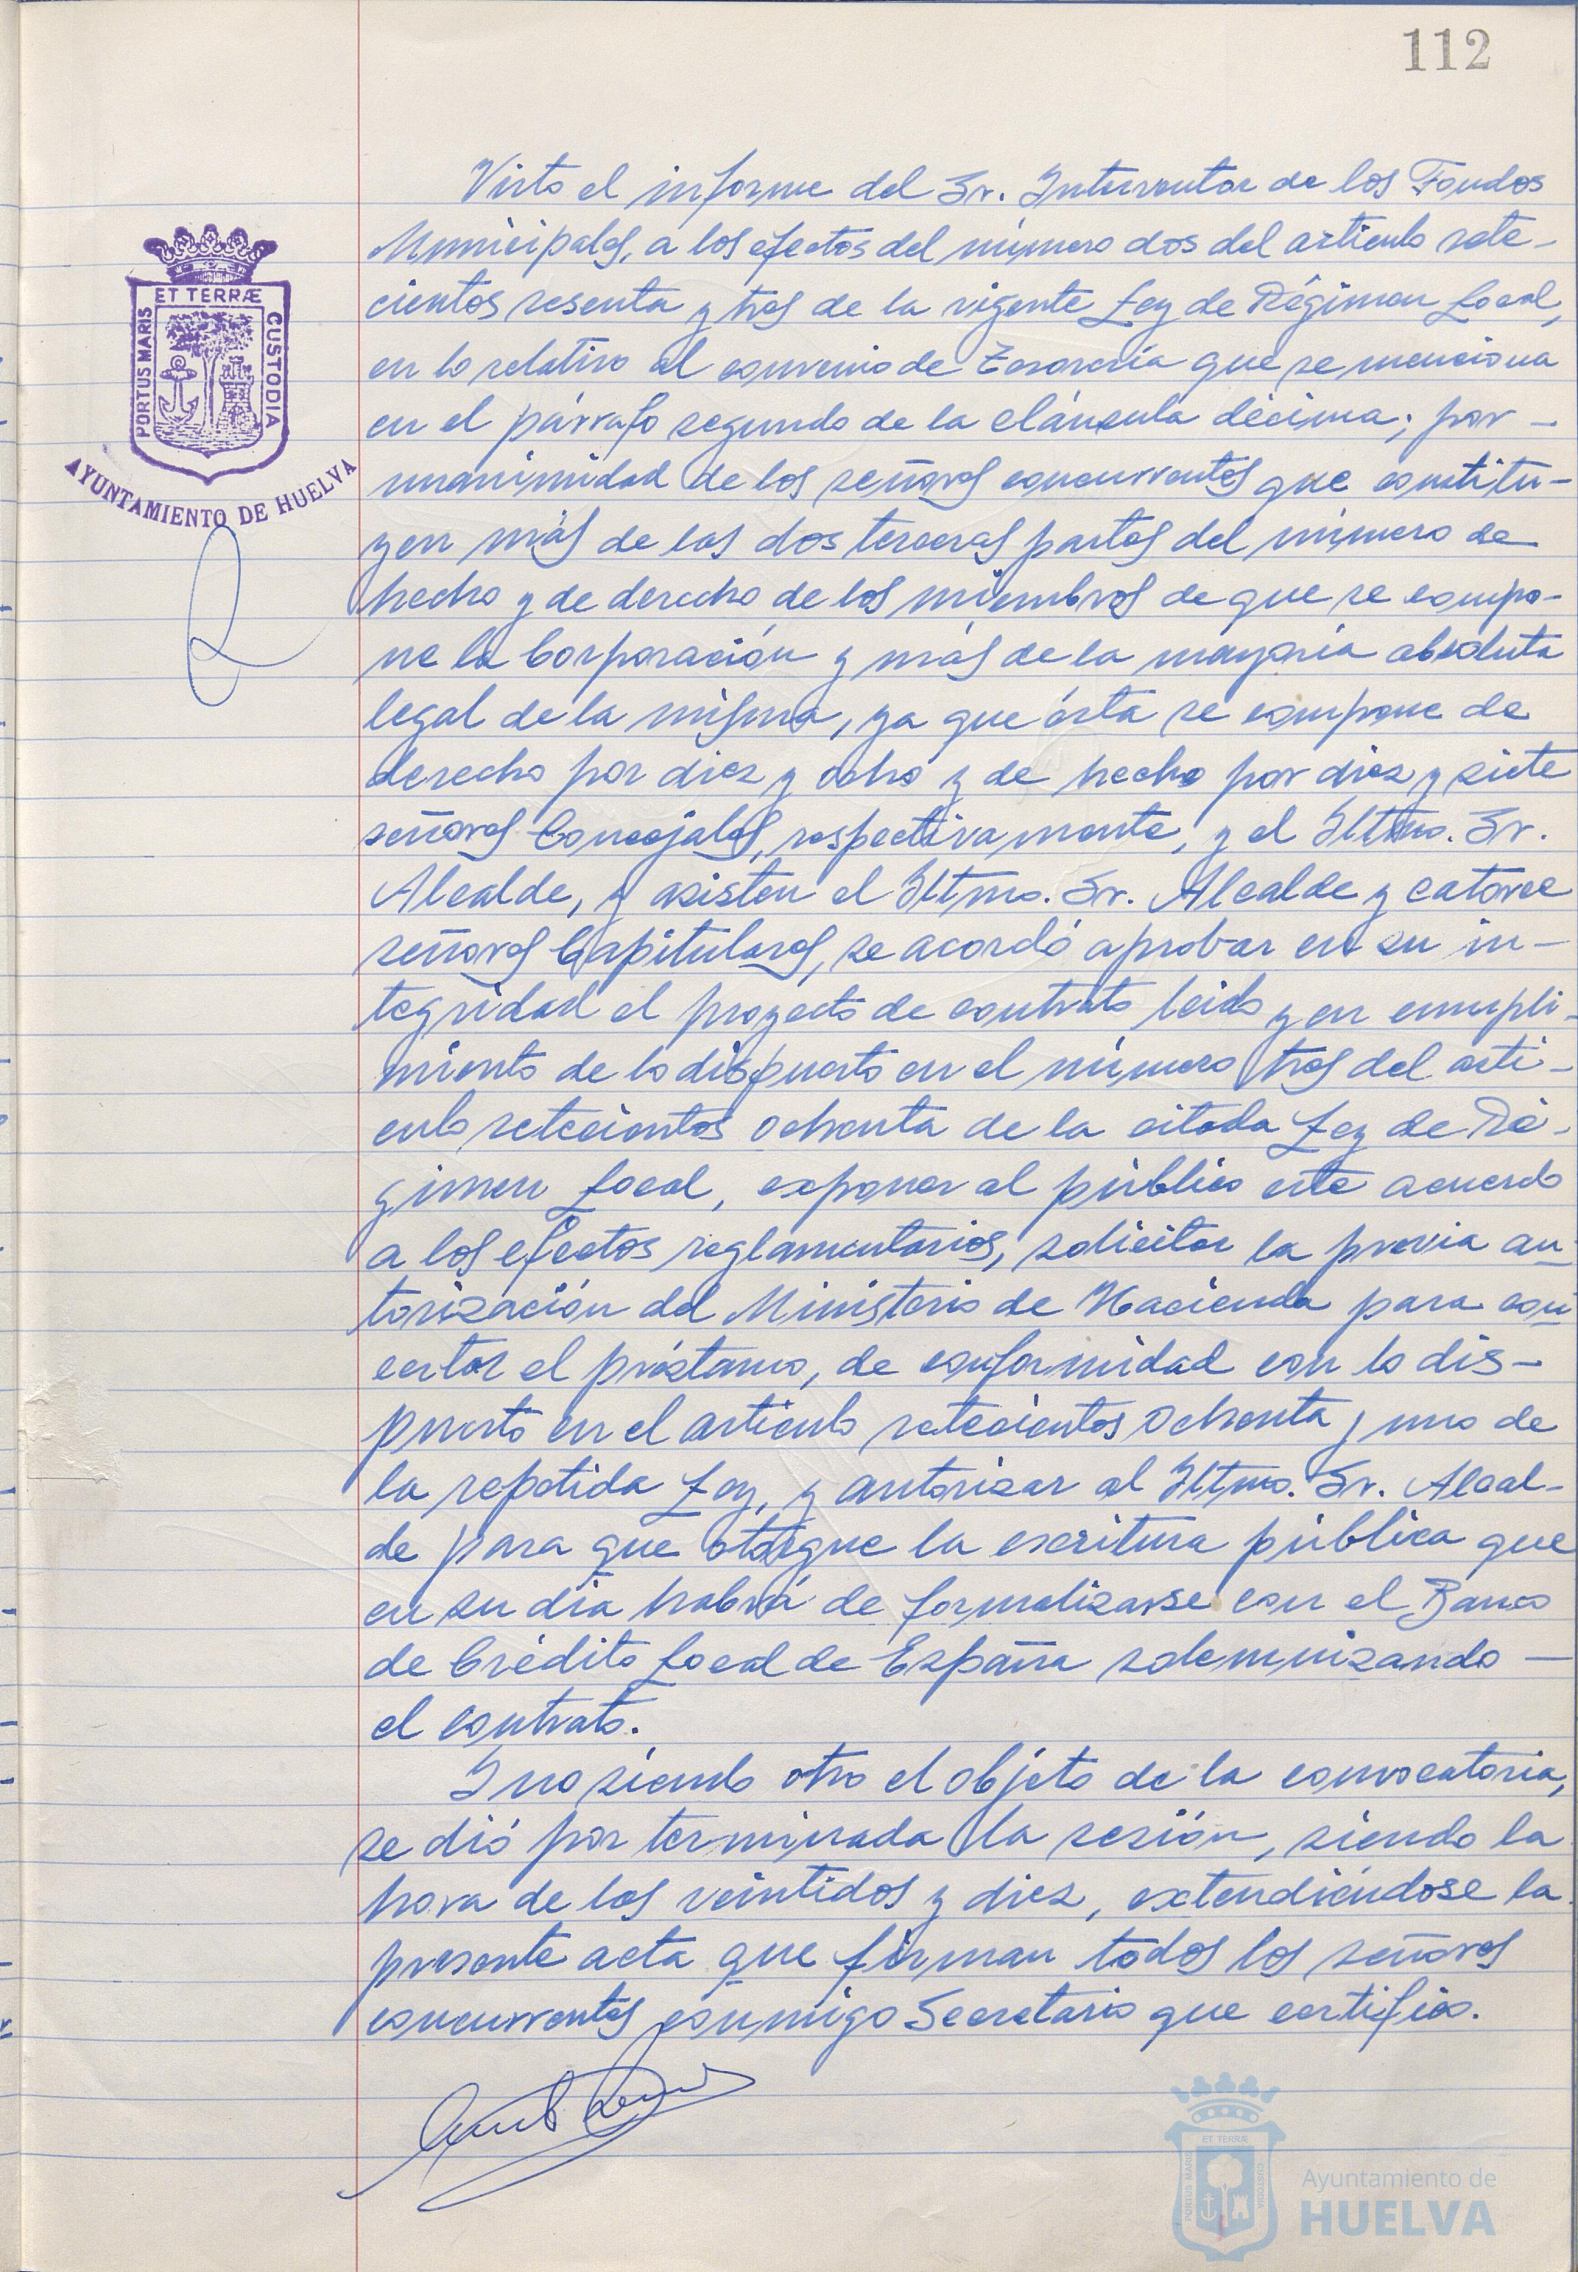 112
Visto el informe del Sr. Interventor de los Fondos
Municipales, a los efectos del número dos del artículo sete-
cientos sesenta y tres de la vigente Ley de Régimen Local,
en lo relativo al convenio de Tesorería que se menciona
en el párrafo segundo de la cláusula décima; por -
unanimidad de los señores concurrentes que constitu-
yen más de las dos terceras partes del número de
hecho y de derecho de los miembros de que se compo-
ne la Corporación y más de la mayoría absoluta
legal de la misma, ya que ésta se compone de
derecho por diez y ocho y de hecho por diez y siete
señores Concejales, respectivamente, y el Iltmo. Sr.
Alcalde, y asisten el Iltmo. Sr. Alcalde y catorce
señores Capitulares, se acordó aprobar en su in-
tegridad el proyecto de contrato leido y en cumpli-
miento de lo dispuesto en el número tres del artí-
culo setecientos ochenta de la citada Ley de Ré-
gimen Local, exponer al público este acuerdo
a los efectos reglamentarios, solicitar la previa au-
torización del Ministerio de Hacienda para con-
certar el préstamo, de conformidad con lo dis-
puesto en el artículo setecientos ochenta y uno de
la repetida Ley, y autorizar al Iltmo. Sr. Alcal-
de para que otorgue la escritura pública que
en su día habrá de formalizarse con el Banco
de Crédito Local de España solemnizando -
el contrato.
Y no siendo otro el objeto de la convocatoria,
se dió por terminada la sesión, siendo la
hora de las veintidos y diez, extendiéndose la
presente acta que firman todos los señores
concurrentes conmigo Secretario que certifico.
PORTUS MARIS ET TERRÆ CUSTODIA
AYUNTAMIENTO DE HUELVA
PORTUS MARIS ET TERRÆ CUSTODIA
Ayuntamiento de
HUELVA